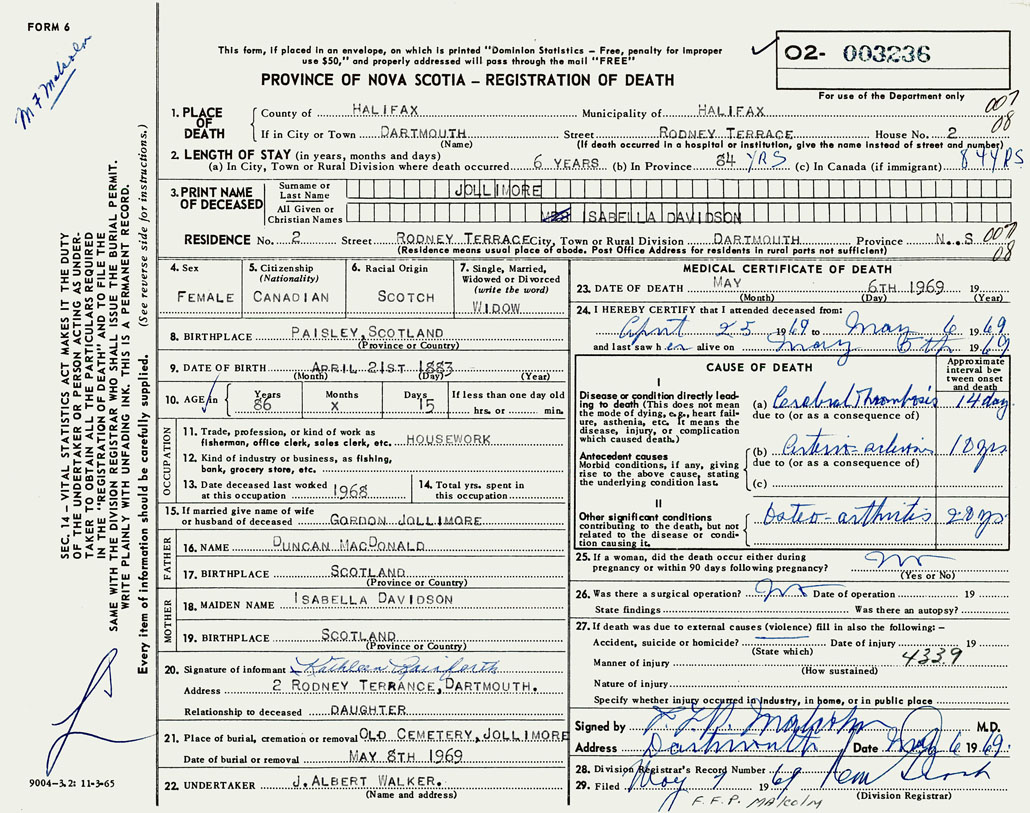 FORM 6
M F Malcolm
This form, if placed in an envelope, on which is printed "Dominion Statistics – Free, penalty for improper
use $50," and properly addressed will pass through the mail "FREE"
PROVINCE OF NOVA SCOTIA – REGISTRATION OF DEATH
02- 003236
For use of the Department only
007
08
1. PLACE OF DEATH
County of HALIFAX Municipality of HALIFAX
If in City or Town DARTMOUTH Street RODNEY TERRACE House No. 2
(Name) (If death occurred in a hospital or institution, give the name instead of street and number)
2. LENGTH OF STAY (in years, months and days)
(a) In City, Town or Rural Division where death occurred 6 YEARS (b) In Province 84 YRS (c) In Canada (if immigrant) 84 YRS
3. PRINT NAME OF DECEASED
Surname or Last Name JOLLIMORE
All Given or Christian Names ISABELLA DAVIDSON
RESIDENCE No. 2 Street RODNEY TERRACE City, Town or Rural Division DARTMOUTH Province N. S
(Residence means usual place of abode. Post Office Address for residents in rural parts not sufficient)
007
08
4. Sex
FEMALE
5. Citizenship
(Nationality)
CANADIAN
6. Racial Origin
SCOTCH
7. Single, Married,
Widowed or Divorced
(write the word)
WIDOW
8. BIRTHPLACE PAISLEY, SCOTLAND
(Province or Country)
9. DATE OF BIRTH APRIL 21ST 1883
(Month) (Day) (Year)
10. AGE in
Years 86
Months X
Days 15
If less than one day old
hrs. or min.
OCCUPATION
11. Trade, profession, or kind of work as
fisherman, office clerk, sales clerk, etc. HOUSEWORK
12. Kind of industry or business, as fishing,
bank, grocery store, etc.
13. Date deceased last worked
at this occupation 1968
14. Total yrs. spent in
this occupation
15. If married give name of wife
or husband of deceased GORDON JOLLIMORE
FATHER
16. NAME DUNCAN MACDONALD
17. BIRTHPLACE SCOTLAND
(Province or Country)
MOTHER
18. MAIDEN NAME ISABELLA DAVIDSON
19. BIRTHPLACE SCOTLAND
(Province or Country)
20. Signature of informant Kathleen Rainforth
Address 2 RODNEY TERRANCE, DARTMOUTH.
Relationship to deceased DAUGHTER
21. Place of burial, cremation or removal OLD CEMETERY, JOLLIMORE
Date of burial or removal MAY 8TH 1969
22. UNDERTAKER J. ALBERT WALKER.
(Name and address)
MEDICAL CERTIFICATE OF DEATH
23. DATE OF DEATH MAY 6TH 1969 19
(Month) (Day) (Year)
24. I HEREBY CERTIFY that I attended deceased from:
April 25 1969 to May 6 1969
and last saw her alive on May 5th 1969
CAUSE OF DEATH
Approximate interval between onset and death
I
Disease or condition directly leading to death (This does not mean the mode of dying, e.g., heart failure, asthenia, etc. It means the disease, injury, or complication which caused death.)
(a) Cerebral Thrombosis 14 days
due to (or as a consequence of)
Antecedent causes
Morbid conditions, if any, giving rise to the above cause, stating the underlying condition last.
(b) 10 yrs
due to (or as a consequence of)
(c)
II
Other significant conditions
contributing to the death, but not related to the disease or condition causing it.
Osteo-arthritis 20 yrs
25. If a woman, did the death occur either during
pregnancy or within 90 days following pregnancy? No
(Yes or No)
26. Was there a surgical operation? No Date of operation 19
State findings Was there an autopsy?
27. If death was due to external causes (violence) fill in also the following: –
Accident, suicide or homicide? Date of injury 19
(State which)
4339
Manner of injury
(How sustained)
Nature of injury
Specify whether injury occurred in industry, in home, or in public place
Signed by F. F. P. Malcolm M.D.
Address Dartmouth Date May 6 1969.
28. Division Registrar's Record Number
29. Filed May 7 1969
(Division Registrar)
F. F. P. MALCOLM
SEC. 14 – VITAL STATISTICS ACT MAKES IT THE DUTY
OF THE UNDERTAKER OR PERSON ACTING AS UNDER-
TAKER TO OBTAIN ALL THE PARTICULARS REQUIRED
IN THE "REGISTRATION OF DEATH" AND TO FILE THE
SAME WITH THE DIVISION REGISTRAR WHO SHALL ISSUE THE BURIAL PERMIT.
WRITE PLAINLY WITH UNFADING INK. THIS IS A PERMANENT RECORD.
Every item of information should be carefully supplied. (See reverse side for instructions.)
9004-3.2: 11-3-65